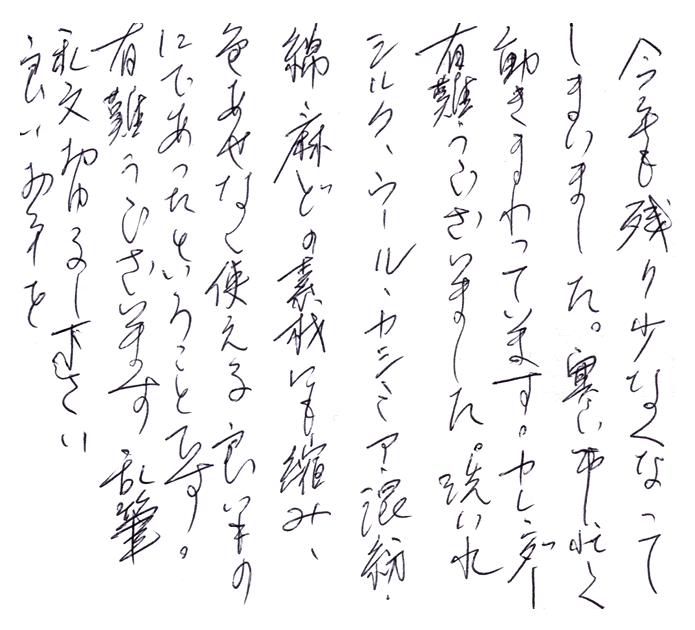 今年も残り少なくなって
しまいました。寒い中忙しく
動きまわっています。カレンダー
有難うございました。洗い水
シルク、ウール、カシミア、混紡、
綿、麻どの素材にも縮み、
色あせなく使える良いもの
にであったということです。
有難うございます 乱筆
乱文おゆるし下さい
良いお年を